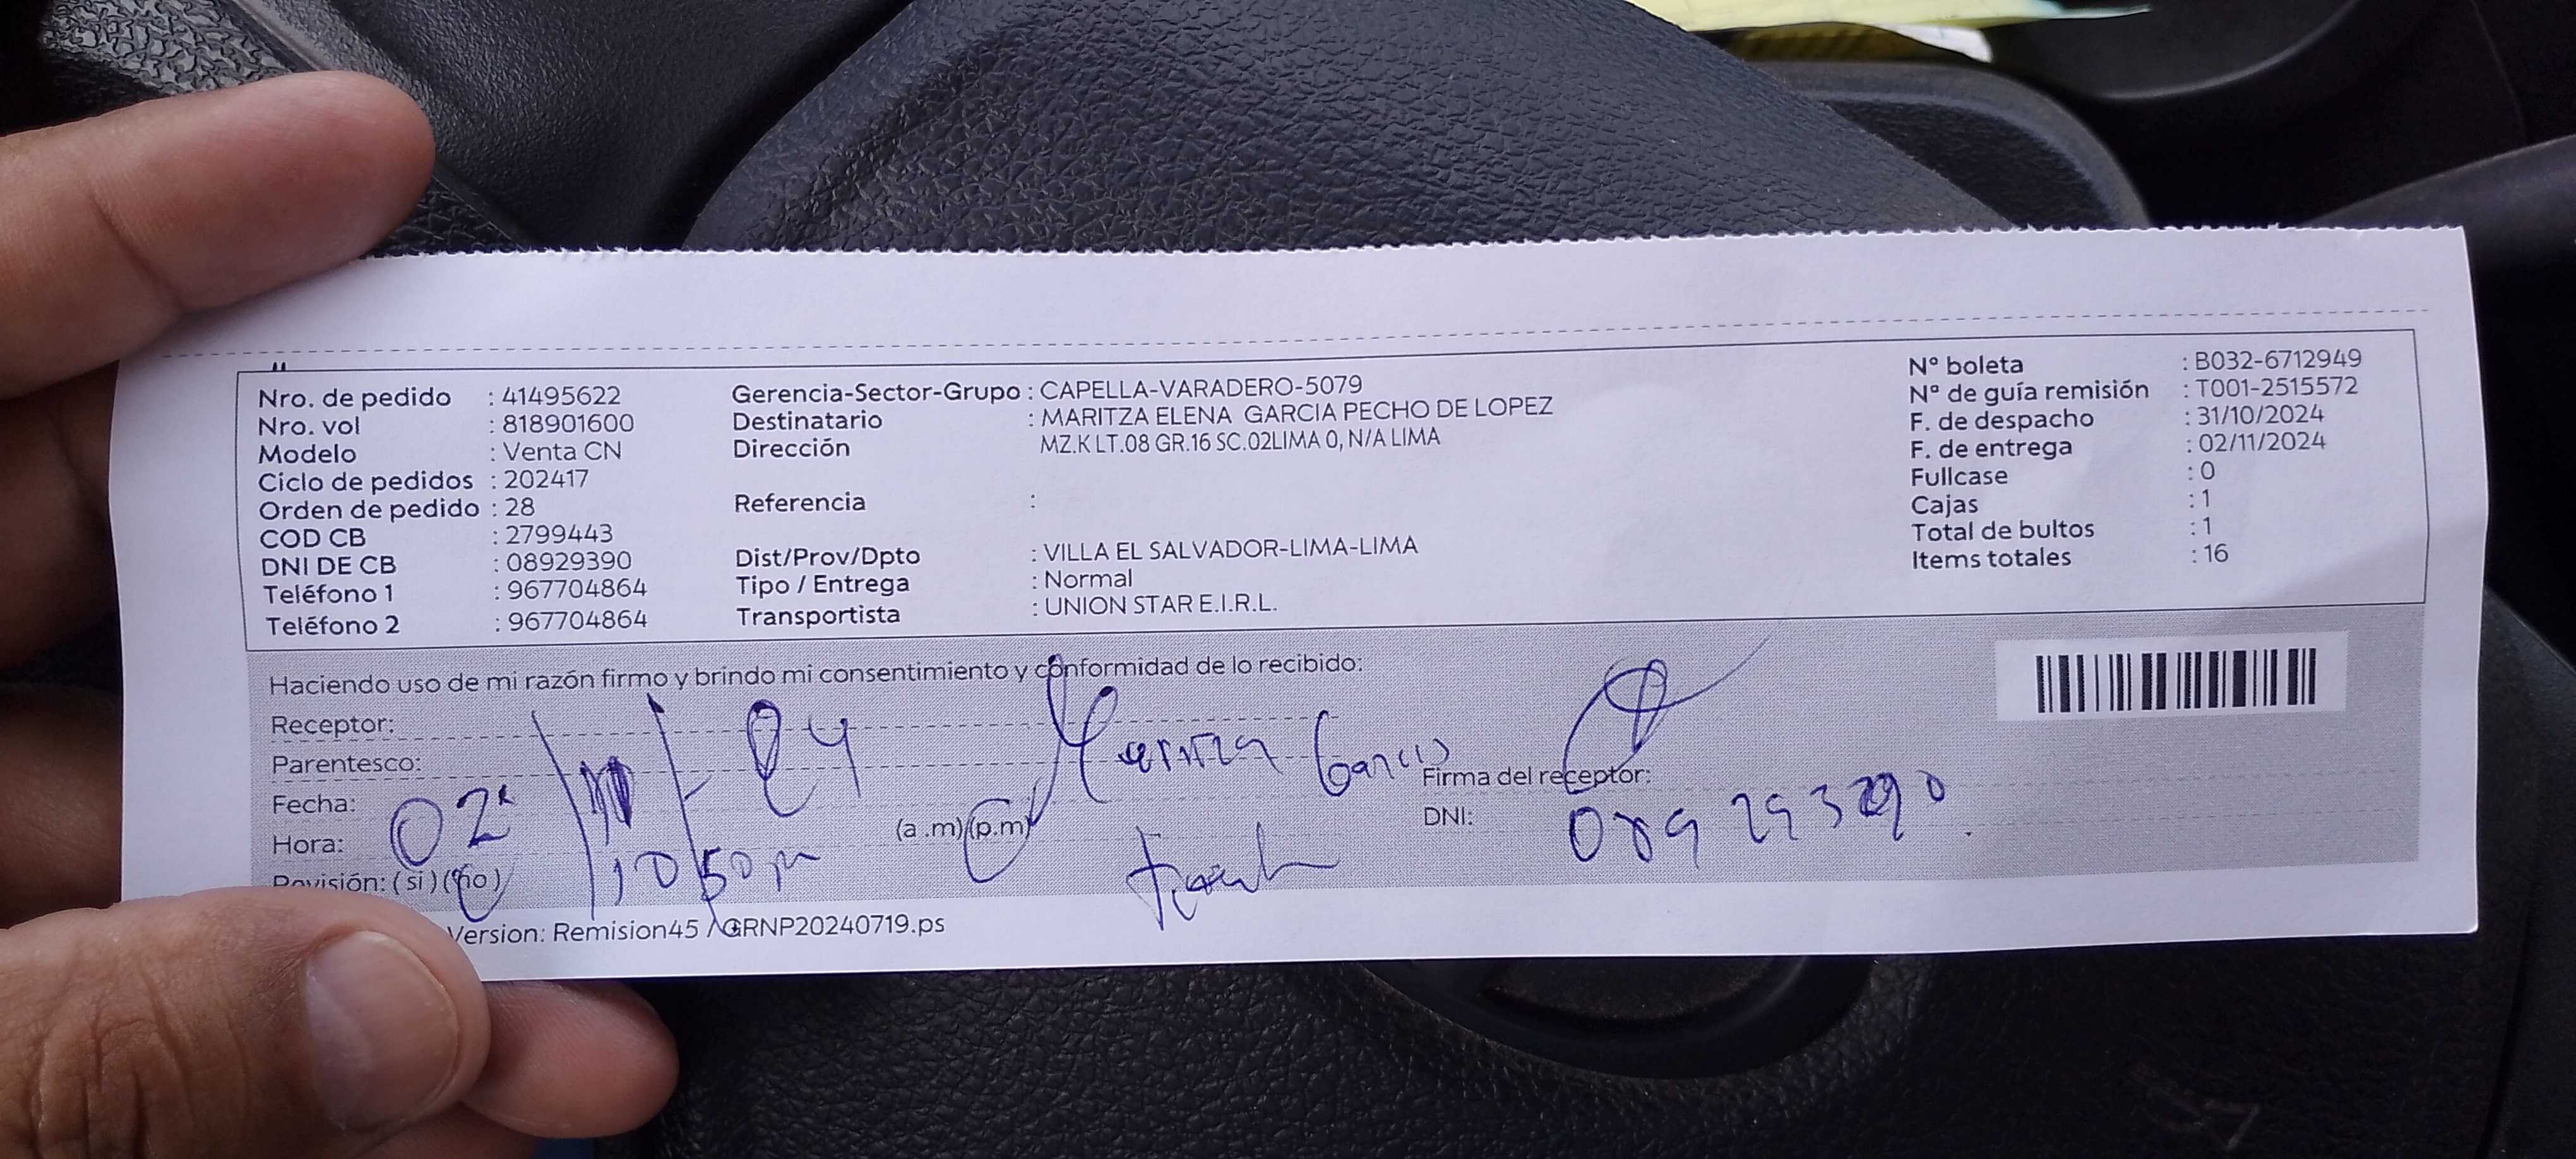 Nro. de pedido : 41495622
Nro. vol : 818901600
Modelo : Venta CN
Ciclo de pedidos : 202417
Orden de pedido : 28
COD CB : 2799443
DNI DE CB : 08929390
Teléfono 1 : 967704864
Teléfono 2 : 967704864
Gerencia-Sector-Grupo : CAPELLA-VARADERO-5079
Destinatario : MARITZA ELENA GARCIA PECHO DE LOPEZ
Dirección MZ.K LT.08 GR.16 SC.02LIMA 0, N/A LIMA
Referencia :
Dist/Prov/Dpto : VILLA EL SALVADOR-LIMA-LIMA
Tipo / Entrega : Normal
Transportista : UNION STAR E.I.R.L.
N° boleta : B032-6712949
Nª de guía remisión : T001-2515572
F. de despacho : 31/10/2024
F. de entrega : 02/11/2024
Fullcase : 0
Cajas : 1
Total de bultos : 1
Items totales : 16
Haciendo uso de mi razón firmo y brindo mi consentimiento y conformidad de lo recibido:
Receptor:
Parentesco:
Garcia
Firma del receptor:
Fecha: 02
Hora: 10 50 (a .m) (p.m)
DNI:
Revisión: ( si ) ( no )
Version: Remision45 / GRNP20240719.ps